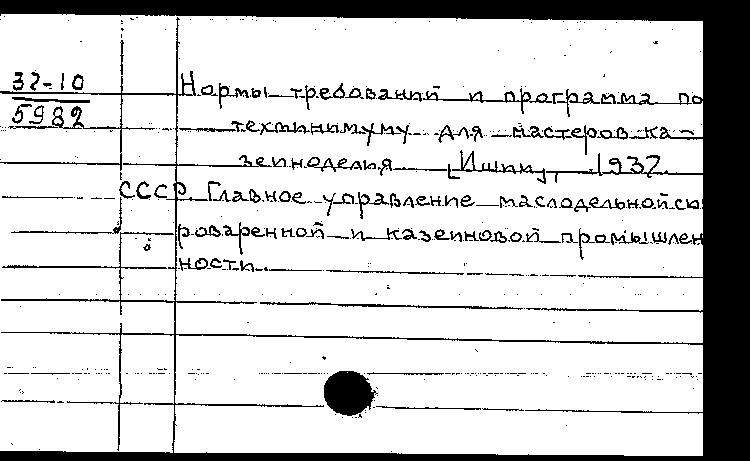 32-10
5982
Нормы требований и программа по
техминимуму для мастеров ка-
зеиноделия [Ишим], 1932.
СССР. Главное управление маслодельной сы
роваренной и казеиновой промышлен
ности.